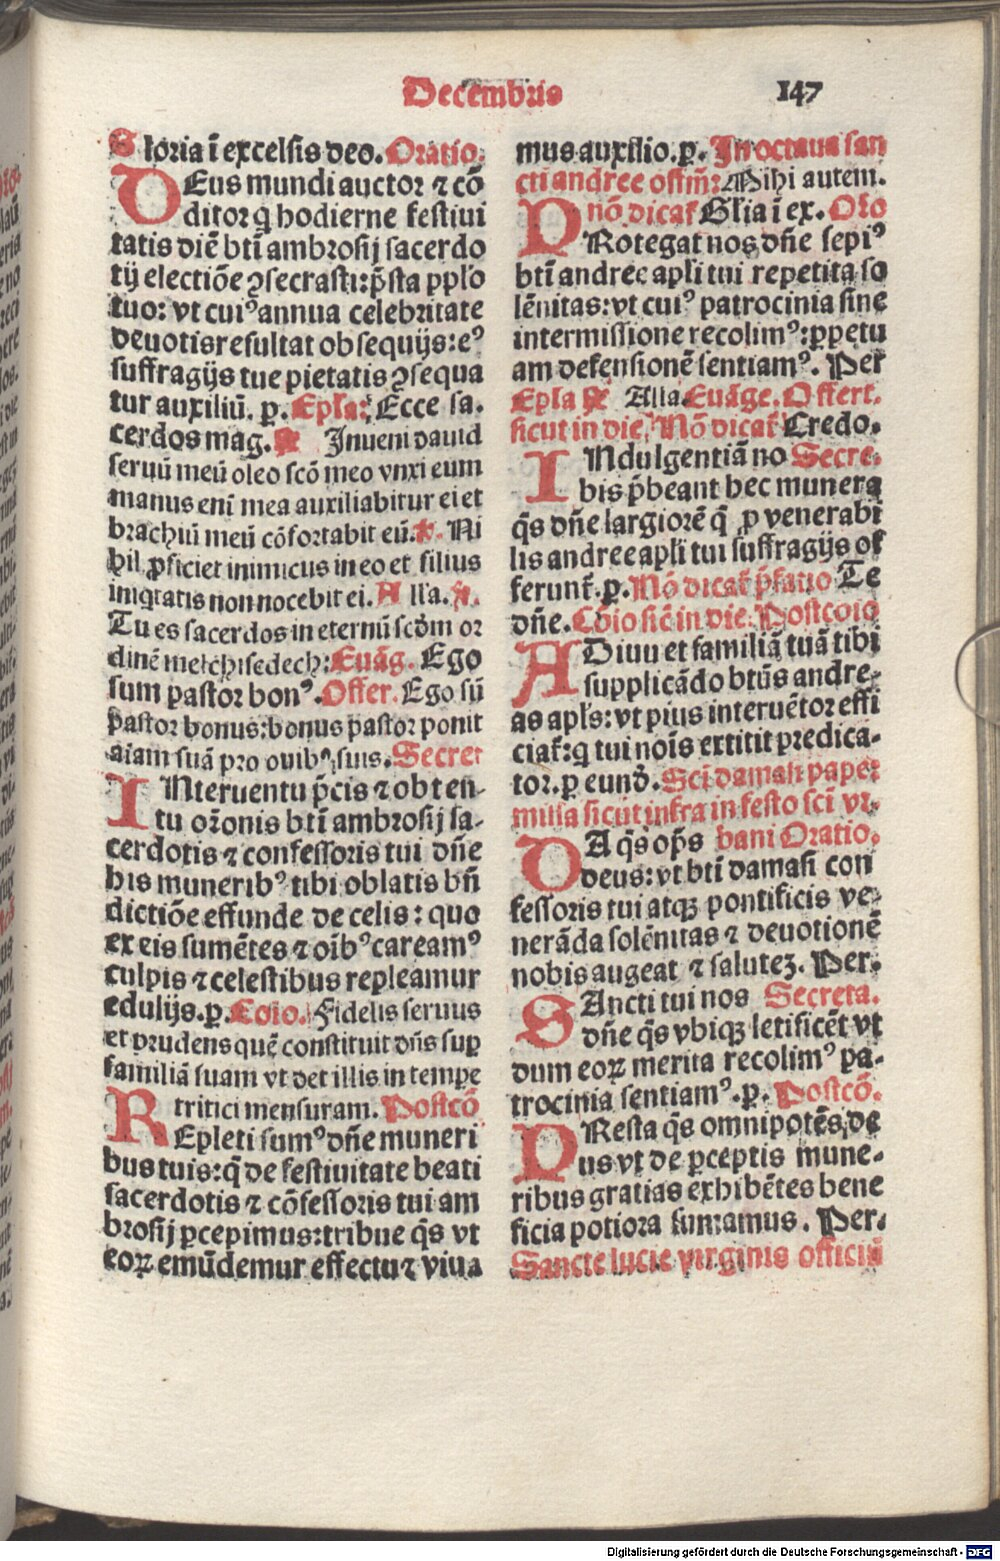 Decembris
147
Gloria ī excelsis deo. Oratio.
DEus mundi auctor ⁊ cō
ditor q̇ hodierne festiui
tatis diē btī ambrosij sacerdo
tij electiōe ꝯsecrasti: p̄sta pplo
tuo: vt cuiꝰ annua celebritate
deuotis resultat obsequijs: eꝰ
suffragijs tue pietatis ꝯsequa
tur auxiliū. p. Epla: Ecce sa.
cerdos mag. Inueni dauid
seruū meū oleo scō meo vnxi eum
manus enī mea auxiliabitur ei et
brachiū meū cōfortabit eū. ℣. Ni
hil ꝓficiet inimicus in eo et filius
iniqtatis non nocebit ei. Alla. ℣.
Tu es sacerdos in eternū scd̄m or
dinē melchisedech: Euāg. Ego
sum pastor bonꝰ. Offer. Ego sū
pastor bonus: bonus pastor ponit
aīam suā pro ouibꝰ suis. Secret
INteruentu p̄cis ⁊ obten-
tu orōnis btī ambrosij sa-
cerdotis ⁊ confessoris tui dn̄e
his muneribꝰ tibi oblatis bn̄
dictiōe effunde de celis: quo
ex eis sumētes ⁊ oībꝰ careamꝰ
culpis ⁊ celestibus repleamur
edulijs. p. Coīo. Fidelis seruus
et prudens quē constituit dn̄s suꝑ
familiā suam vt det illis in tempe
tritici mensuram. Postcō
REpleti sumꝰ dn̄e muneri
bus tuis: q̄ de festiuitate beati
sacerdotis ⁊ cōfessoris tui am
brosij ꝑcepimus: tribue q̄s vt
eoꝝ emūdemur effectu ⁊ viua
mus auxilio. p. In octaua san
cti andree offm̄: Mihi autem.
nō dicat̄ Glīa ī ex. Orō
PRotegat nos dn̄e sepiꝰ
btī andree apli tui repetita so
lēnitas: vt cuiꝰ patrocinia sine
intermissione recolimꝰ: ꝑpetu
am defensionē sentiamꝰ. Per
Epla Alla. Euāge. Offert.
sicut in die, Nō dicat̄ Credo.
INdulgentiā no Secre.
bis p̄beant hec munera
q̄s dn̄e largiorē q̄ ꝓ venerabi
lis andree apli tui suffragijs of
ferunt̄. p. Nō dicat̄ p̄fatio Te
dn̄e. Cōio sic̄ in die. Postcoīo
ADiuu et familiā tuā tibi
supplicādo btūs andre-
as apls: vt pius interuētor effi
ciat̄: q tui noīs extitit predica-
tor. p eund̄. Sci damasi pape:
missa sicut infra in festo scī vr-
DA q̄s op̄s bani Oratio.
deus: vt btī damasi con
fessoris tui atqꝫ pontificis ve-
nerāda solēnitas ⁊ deuotionē
nobis augeat ⁊ saluteꝫ. Per.
SAncti tui nos Secreta.
dn̄e q̄s vbiqꝫ letificēt vt
dum eoꝝ merita recolimꝰ pa-
trocinia sentiamꝰ. p. Postcō.
PResta q̄s omnipotēs de
us vt de ꝑceptis mune-
ribus gratias exhibētes bene
ficia potiora sumamus. Per.
Sancte lucie virginis officiū
Digitalisierung gefördert durch die Deutsche Forschungsgemeinschaft - DFG